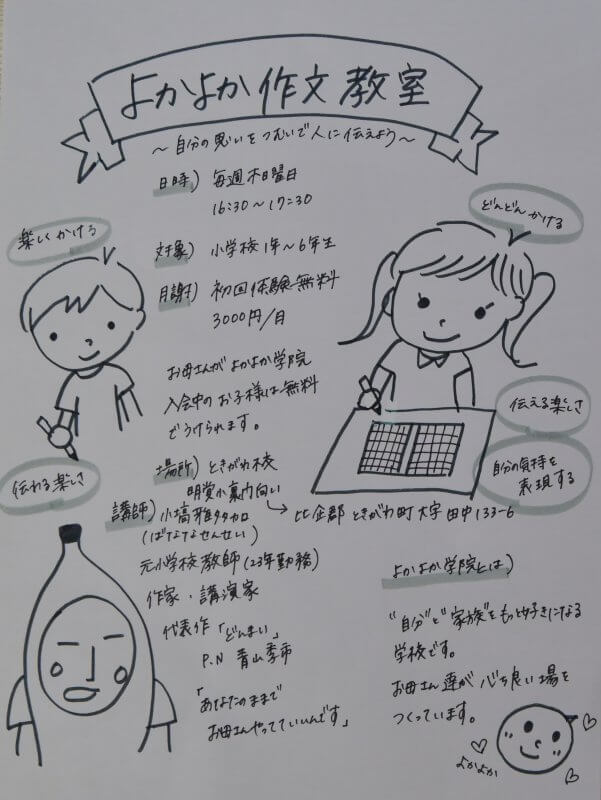 よかよか作文教室
～自分の思いをつむいで人に伝えよう～
日時) 毎週木曜日
16:30～17:30
どんどんかける
楽しくかける
対象) 小学校1年～6年生
月謝) 初回体験無料
3000円/月
お母さんがよかよか学院
入会中のお子様は無料
でうけられます。
伝える楽しさ
自分の気持を
表現する
伝わる楽しさ
場所) ときがわ校
明覚小案内向い
比企郡ときがわ町大字田中133-6
講師) 小塙雅多加
(ばなななせんせい)
元小学校教師(23年勤務)
作家・講演家
代表作「どんまい」
P.N 青山季市
「あなたのままで
お母さんやってていいんです」
よかよか学院とは)
"自分"と"家族"をもっと好きになる
学校です。
お母さん達が心ち良い場を
つくっています。
よかよか